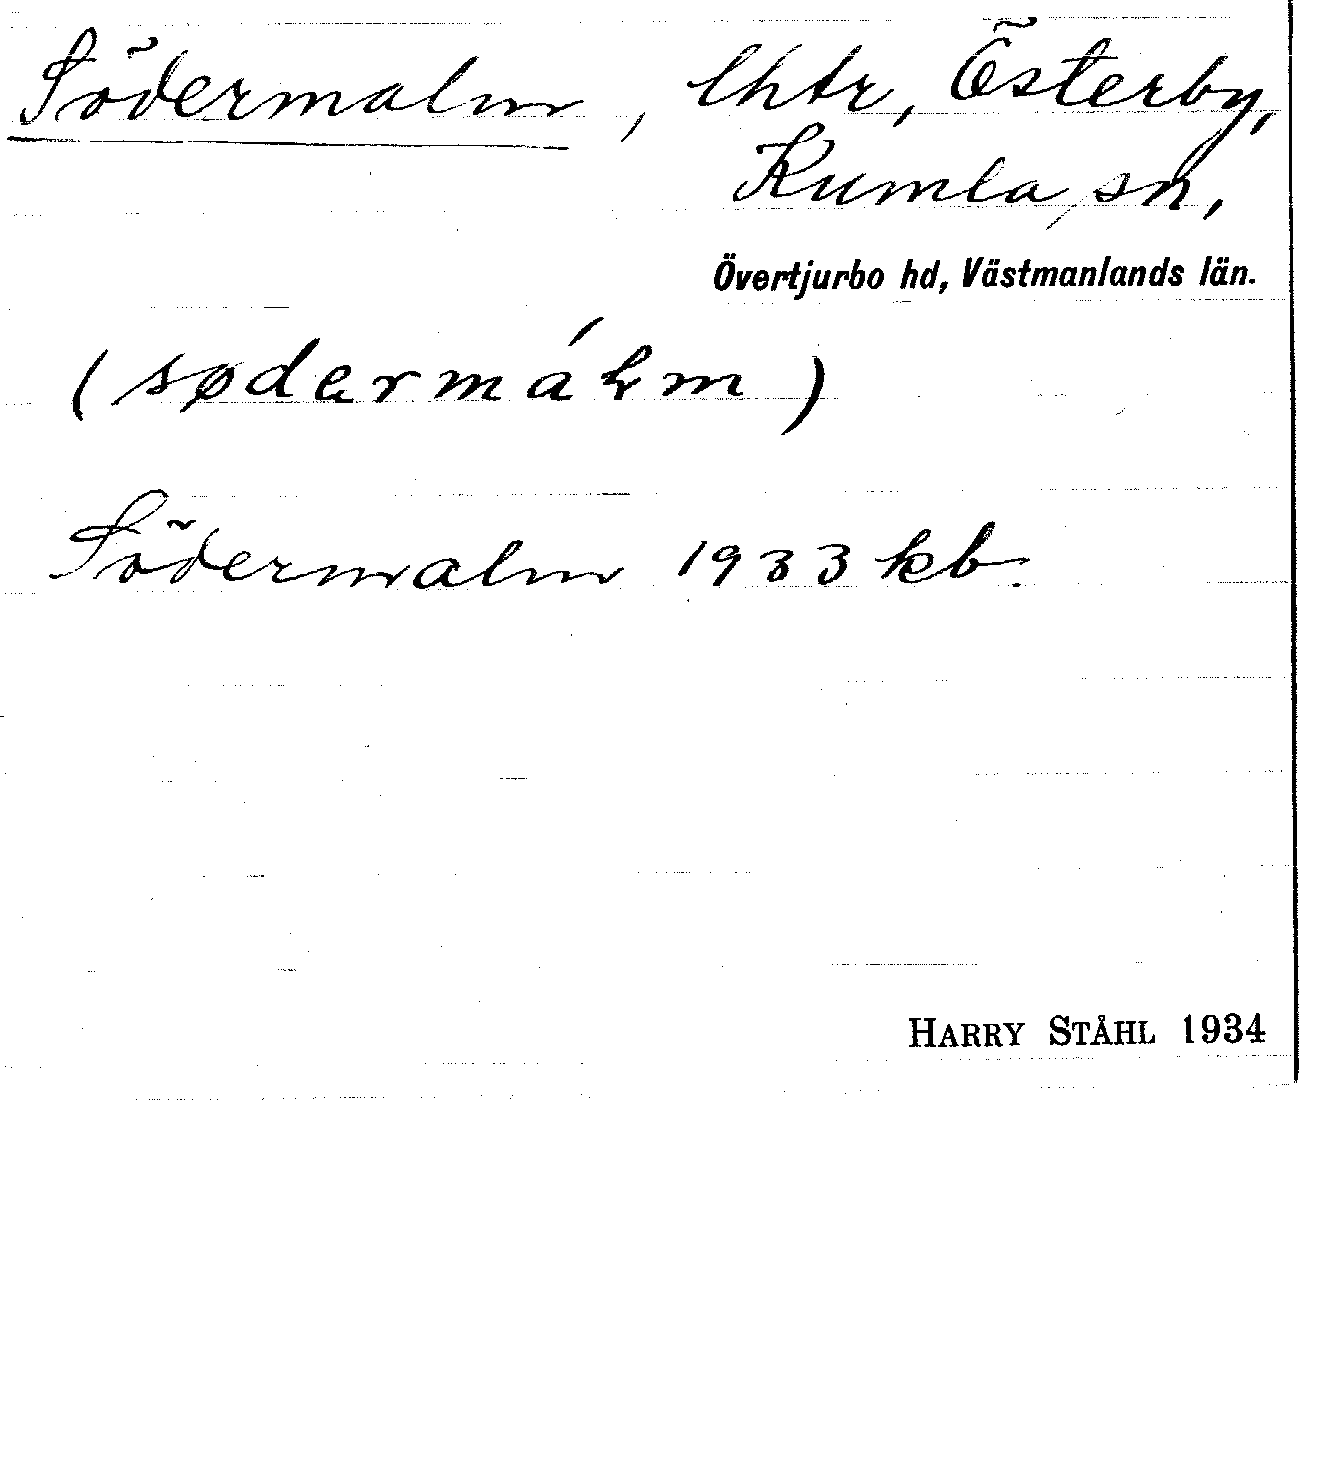 Södermalm, lhtr, Österby,
Kumla sn,
Övertjurbo hd, Västmanlands län.
(sødạrmáⱡm)
Södermalm 1933 kb.
HARRY STÅHL 1934